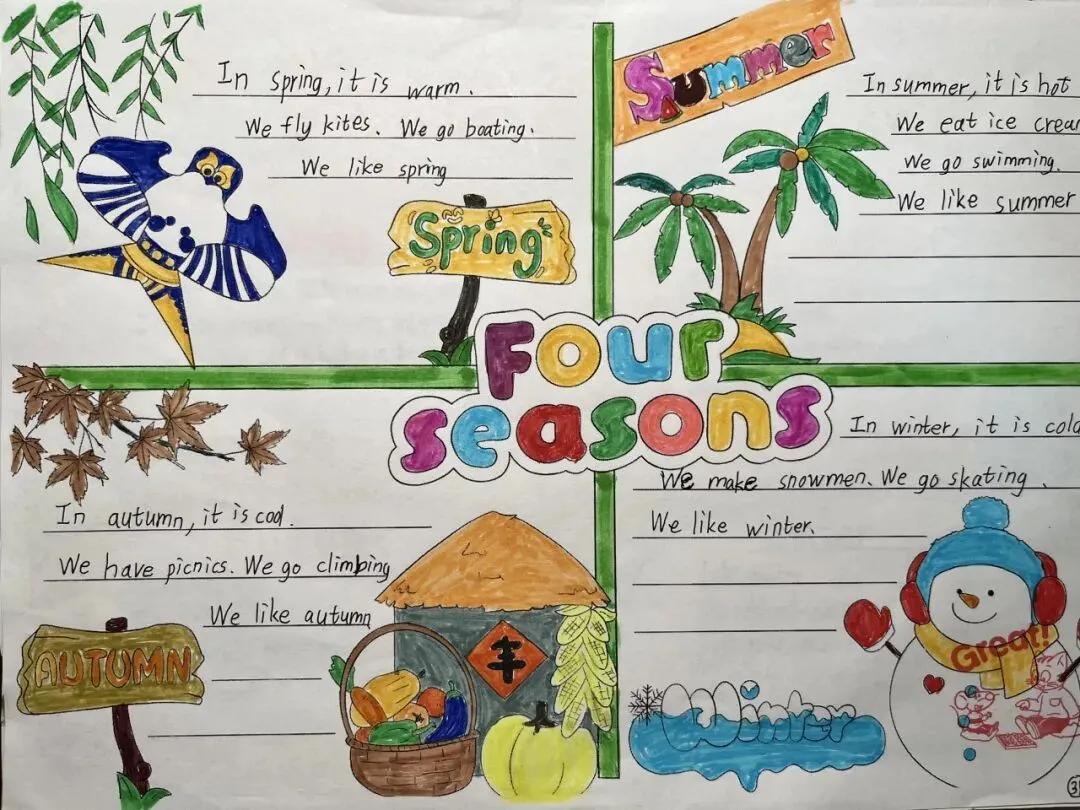 In spring, it is warm.
We fly kites. We go boating.
We like spring
Spring
Summer
In summer, it is hot
We eat ice cream
We go swimming.
We like summer
Four
seasons
In autumn, it is cool.
We have picnics. We go climbing
We like autumn
AUTUMN
丰
In winter, it is cold
We make snowmen. We go skating.
We like winter.
Winter
Great!